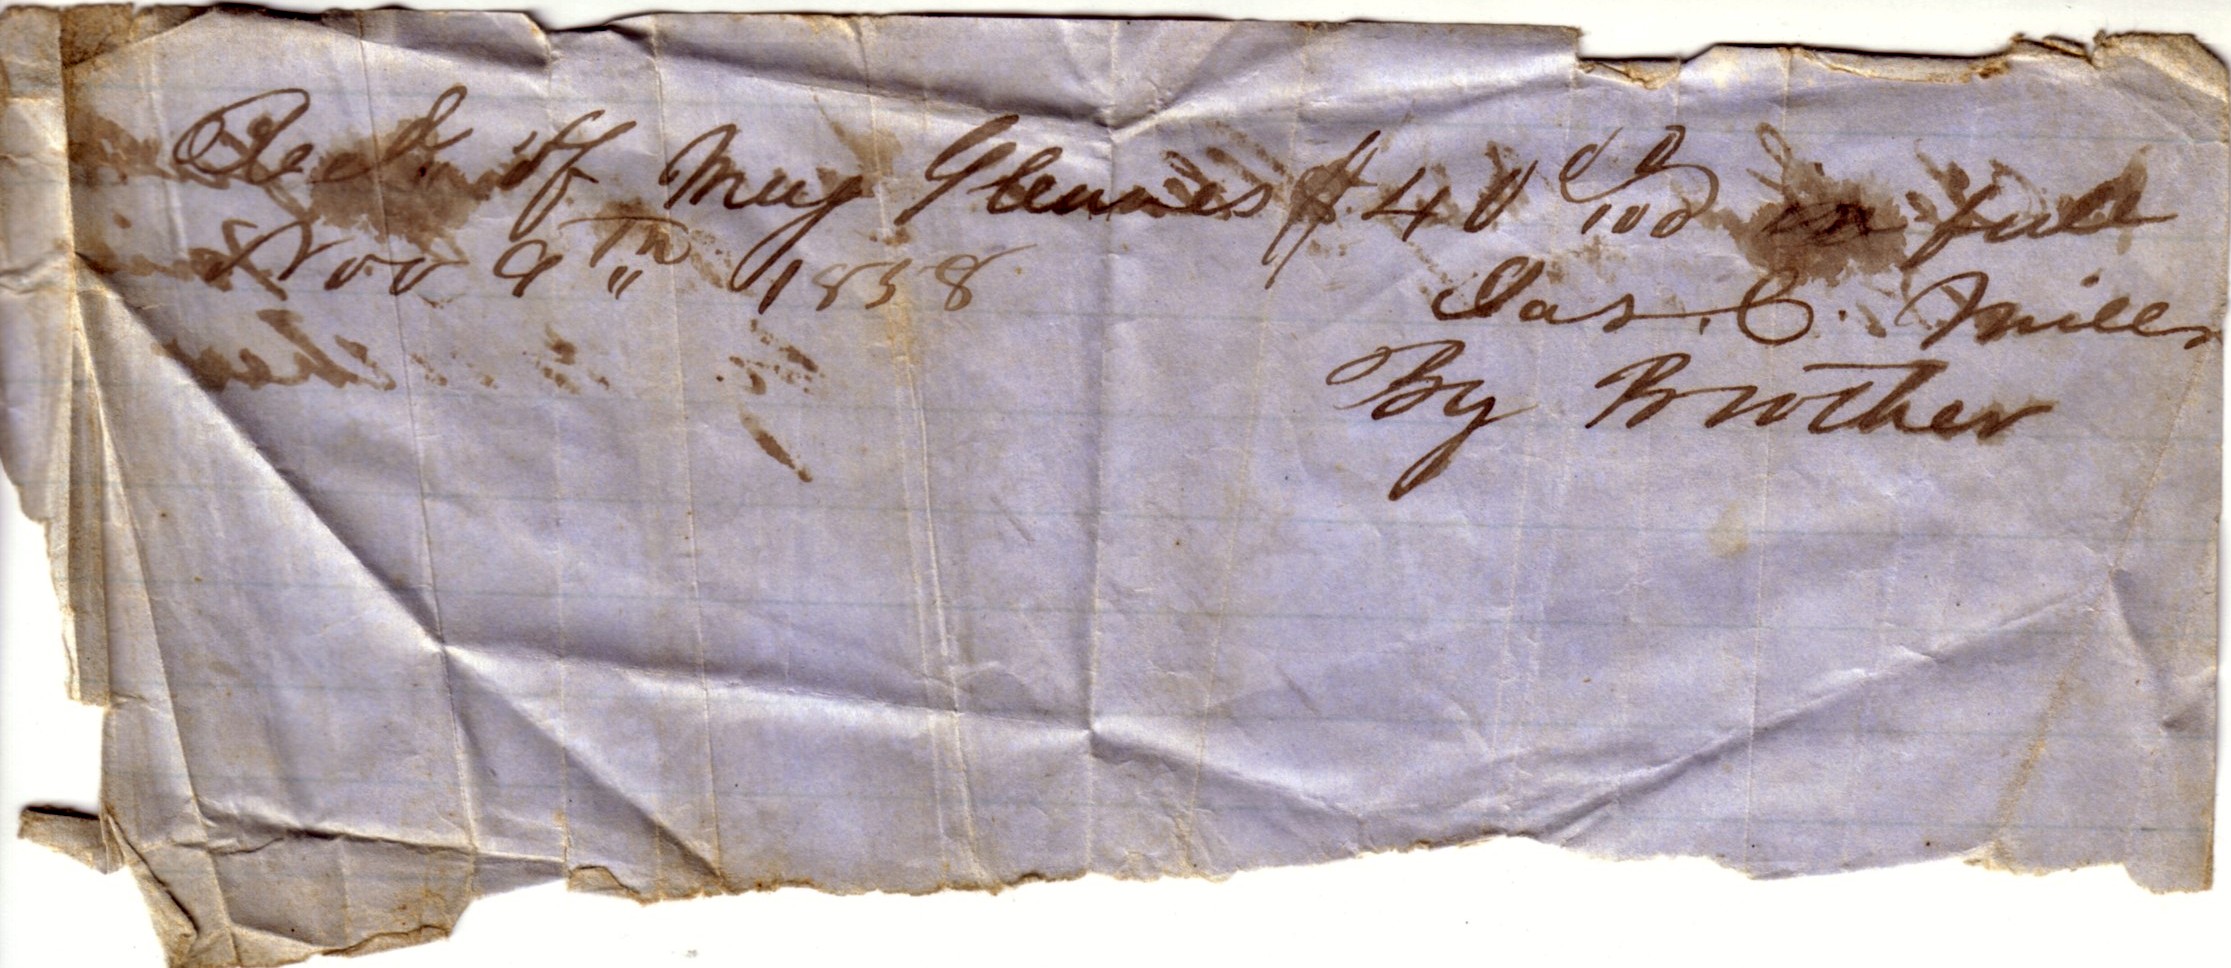 Recd. of Maj Glennes $40 00/100 in full
Nov 9th 1858
Jas. C. Mills
By Brother